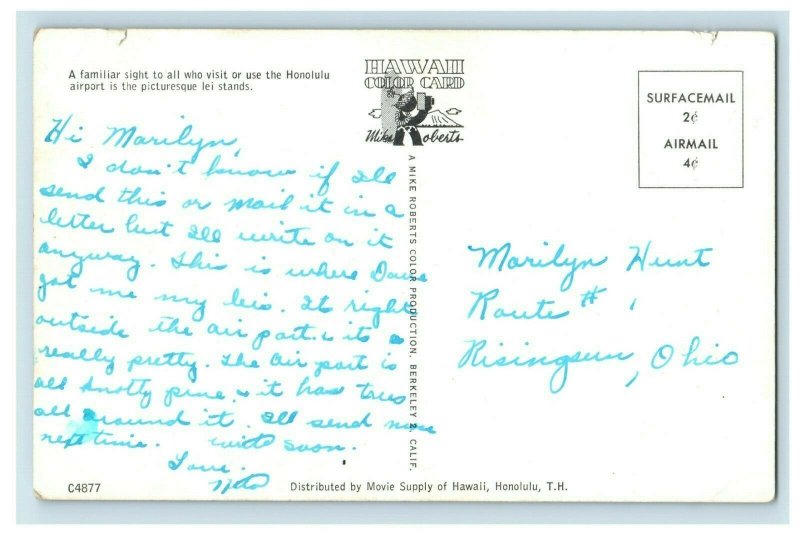 A familiar sight to all who visit or use the Honolulu
airport is the picturesque lei stands.
HAWAII
COLOR CARD
Mike Roberts
SURFACEMAIL
2¢
AIRMAIL
4¢
Hi Marilyn,
I don't know if I'll
send this or mail it in a
letter but I'll write on it
anyway. This is where Dave
got me my leis. It right
outside the air port. & its a
really pretty. The air port is
all knotty pine, & it has trees
all around it. I'll send more
next time. write soon.
Love.
A MIKE ROBERTS COLOR PRODUCTION. BERKELEY 2, CALIF.
Marilyn Hunt
Route # 1
Risingsun, Ohio
C4877
Distributed by Movie Supply of Hawaii, Honolulu, T.H.